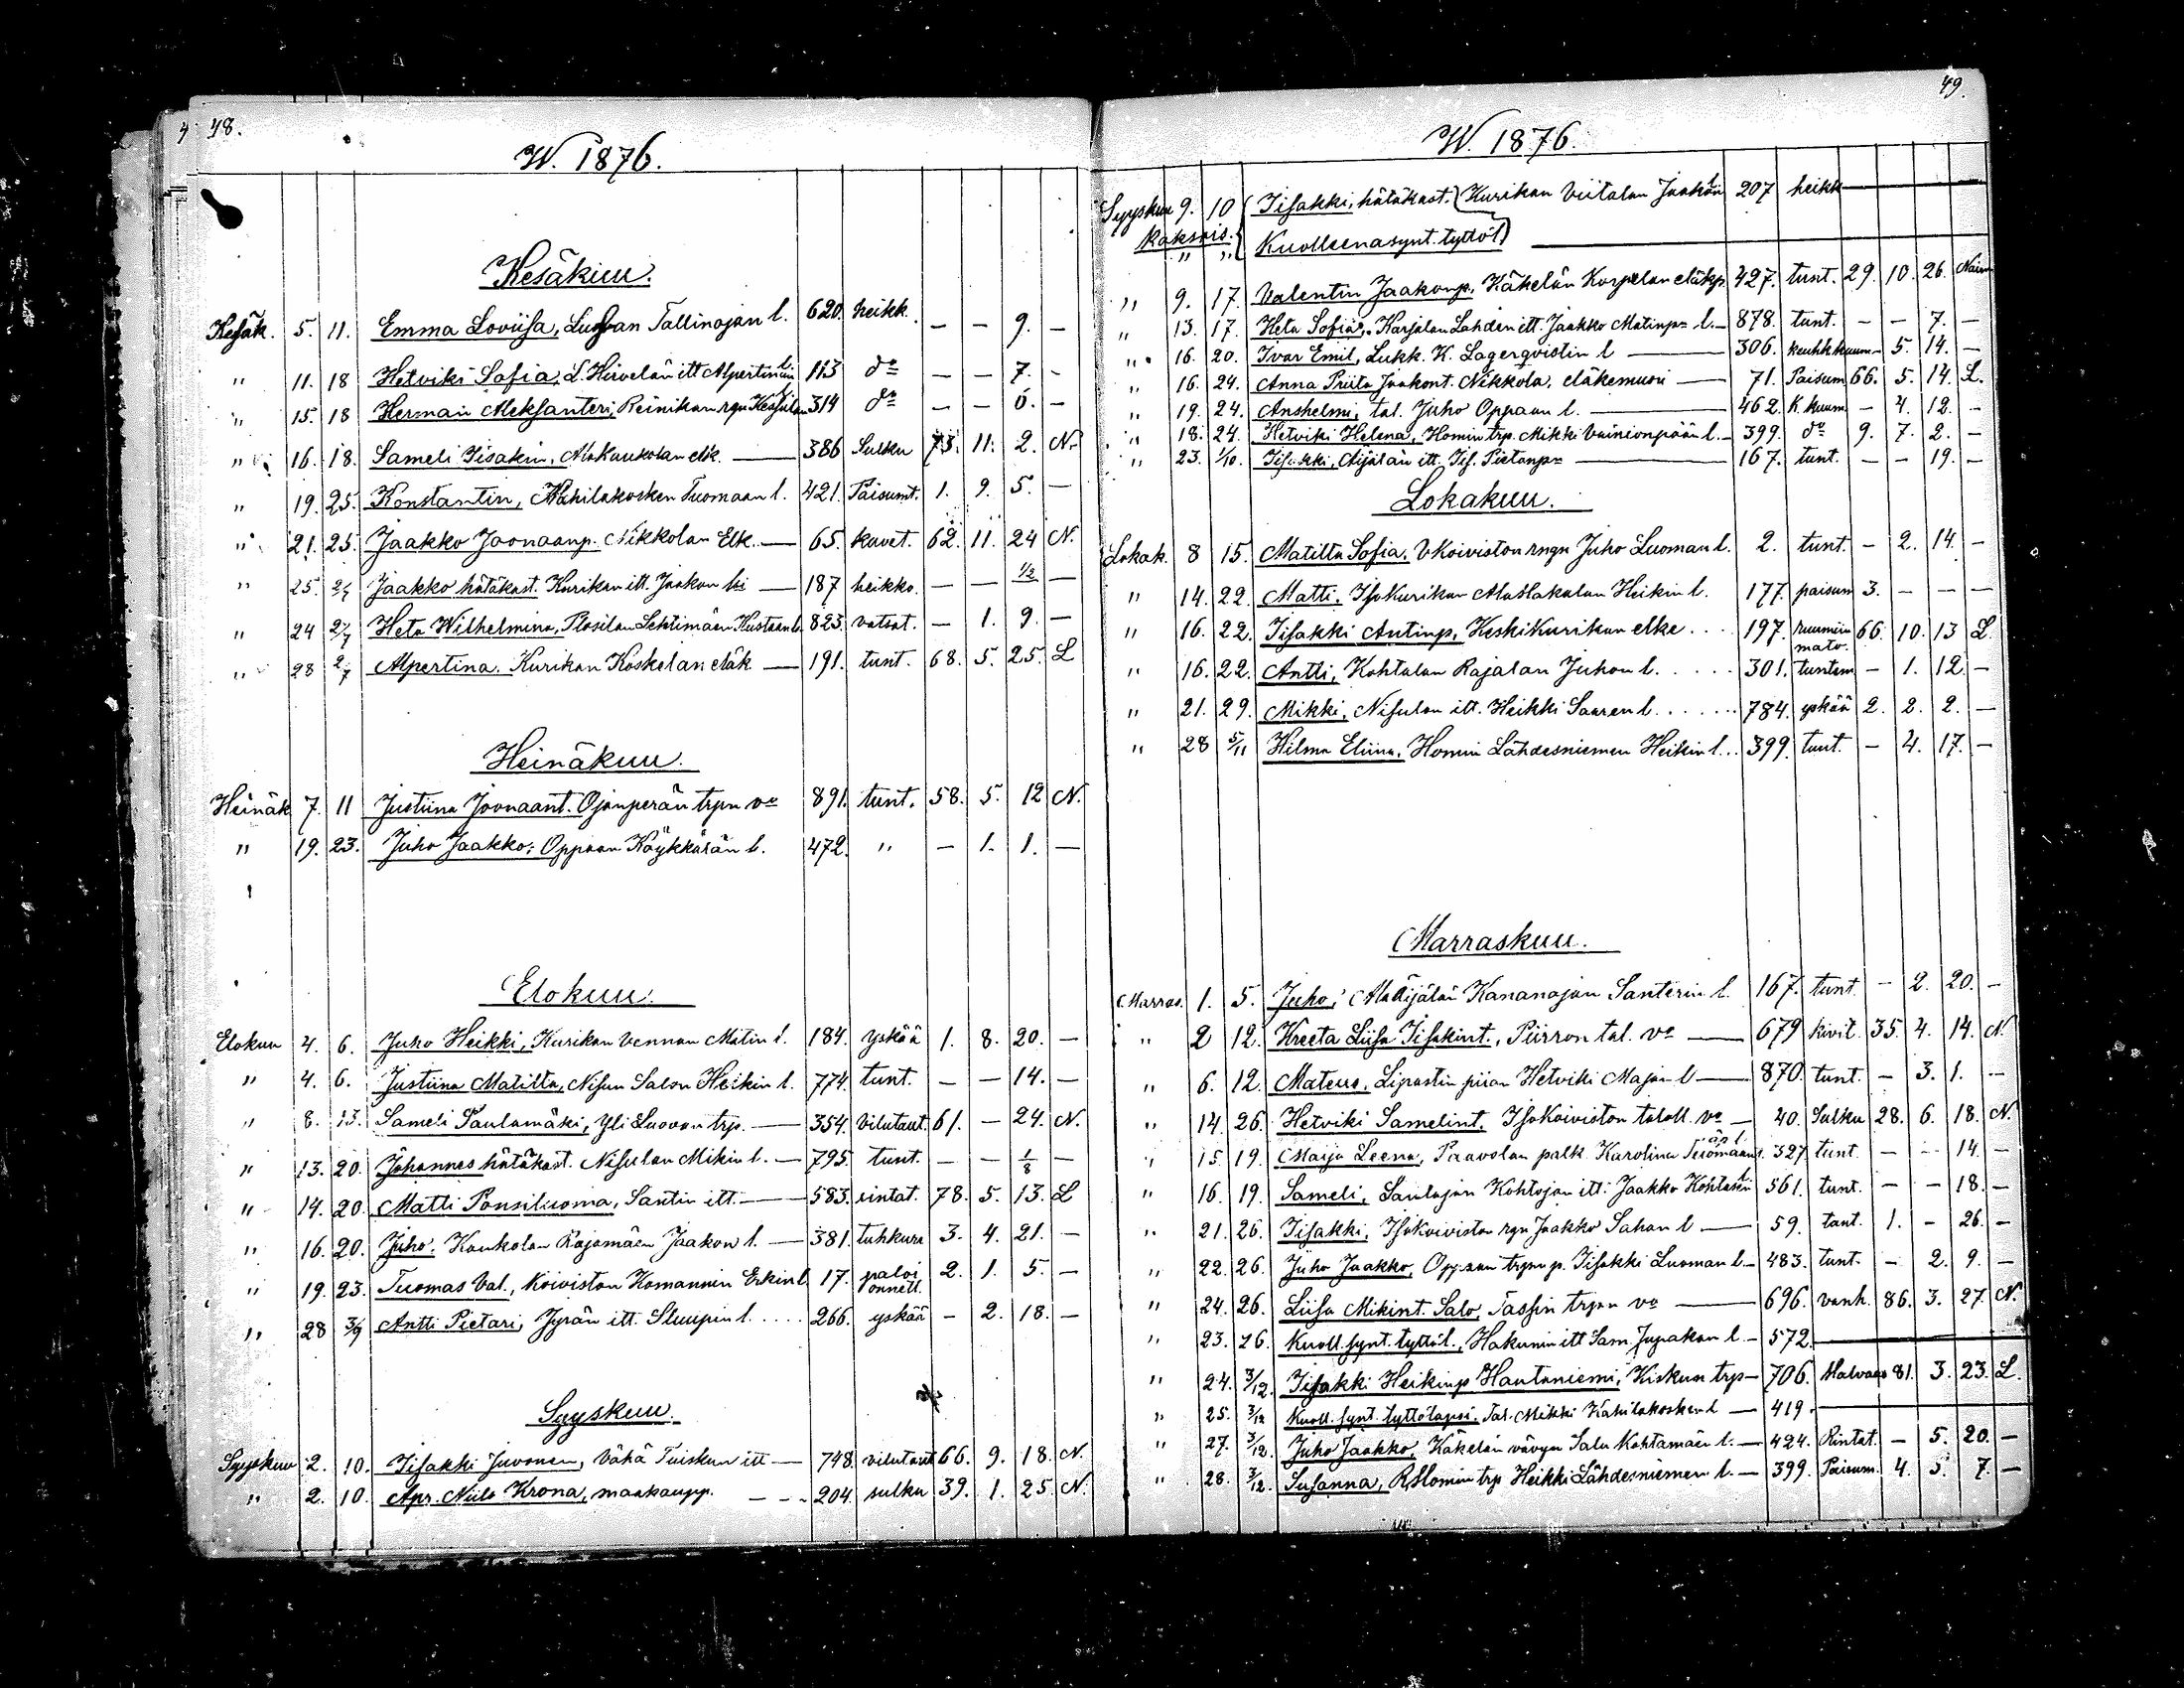 48.
W. 1876.
Kesäkuu.
Kesäk. 5. 11. Emma Loviisa, Luovan Tallinojan l. 620. heikk. — — 9. —
" 11. 18 Hetviki Sofia, L. Hirvelän itt Alpertinan l. 113 do — — 7. -
" 15. 18 Herman Aleksanteri, Reinikan rgn 314 do — — 6. —
" 16. 18. Sameli Iisakin, AlaKaukolan elk. — 386 Sulku 73. 11. 2. N.
" 19. 25. Konstantin, Kahilakosken Tuomaan l. 421. Paisumt. 1. 9. 5. —
" 21. 25. Jaakko Joonaanp. Nikkolan Elk. — 65. kuvet. 62. 11. 24 N.
" 25. 2/7 Jaakko hätäkast. Kurikan itt. Jaakon — 187 heikko. — — 1/2 —
" 24 2/7 Heta Wilhelmina, Plosilan Lehtimäen Kustaan l. 823. vatsat. — 1. 9. —
" 28 2/7 Alpertina. Kurikan Koskelan eläk — 191. tunt. 68. 5. 25. L
Heinäkuu.
Heinäk 7. 11 Justiina Joonaant. Ojanperän trpn vo 891. tunt. 58. 5. 12 N.
" 19. 23. Juho Jaakko; Oppaan Käykkärän l. 472. " — 1. 1. —
Elokuu.
Elokuu 4. 6. Juho Heikki, Kurikan Vennan Matin l. 184. yskää 1. 8. 20. —
" 4. 6. Justiina Matilta, Nisun Salon Heikin l. 774. tunt. — — 14. —
" 8. 13. Sameli Paulamäki, Yli Luovan trp. — 354. vilutaut. 61. — 24. N.
" 13. 20. Johannes hätäkast. Nisulan Mikin l. — 795. tunt. — — 1/8 —
" 14. 20. Matti Ponsiluoma, Santin itt. — 583. rintat. 78. 5. 13. L
" 16. 20. Juho. Kaukolan Rajamäen Jaakon l. — 381. tuhkura 3. 4. 21. —
" 19. 23. Tuomas Val., Koiviston Komannin Erkin l. 17. paloi onnett. 2. 1. 5. —
" 28 3/9 Antti Pietari, Jyrän itt. Sluupin l. .... 266. yskää — 2. 18. —
Syyskuu.
Syyskuu 2. 10. Iisakki Juvonen, Vähä Tuiskun itt — 748. vilutaut 66. 9. 18. N.
" 2. 10. Apr. Niilo Krona, maakaupp. — — 204. sulku 39. 1. 25. N.
49.
W. 1876.
Syyskuu 9. 10 Iisakki, hätäkast. Kurikan Viitalan Jaakon l 207 heikk —
kaksois. " " Kuolleenasynt. tyttöl —
" 9. 17. Valentin Jaakonp. Käkelän Korpelan eläkp. 427. tunt. 29. 10. 26. Nain
" 13. 17. Heta Sofia, Karjalan Lahden itt. Jaakko Matinp. l. — 878. tunt. — — 7. —
" 16. 20. Ivar Emil, Lukk. K. Lagerqvistin l — 306. keuhkkuum — 5. 14. —
" 16. 24. Anna Priita Jaakont. Nikkola, eläkemuori — 71. Paisum 66. 5. 14. L.
" 19. 24. Anshelmi, tal. Juho Oppaan l. — 462. K. kuum — 4. 12. —
" 18. 24. Hetviki Helena, Homin trp. Mikki Vainionpään l. — 399. do 9. 7. 2. —
" 23. 1/10. Iisakki, Äijälän itt. Iis. Pietanp — 167. tunt. — — 19. —
Lokakuu.
Lokak. 8 15. Matilta Sofia. V Koiviston rngn Juho Luoman l. 2. tunt. — 2. 14. —
" 14. 22. Matti. IsoKurikan AlaHakalan Heikin l. 177. paisum 3. — — —
" 16. 22. Iisakki Antinp. KeskiKurikan elke ... 197. ruumin mato. 66. 10. 13 L.
" 16. 22. Antti, Kohtalan Rajalan Juhon l. .... 301. tuntem — 1. 12. —
" 21. 29. Mikki, Nisulan itt. Heikki Saaren l. .... 784. yskää 2. 2. 2. —
" 28 5/11 Hilma Eliina. Homin Lähdesniemen Heikin l. .. 399. tunt. — 4. 17. —
Marraskuu.
Marras. 1. 5. Juho; AlaÄijälän Kananojan Santerin l. 167. tunt — 2. 20. —
" 2 12. Kreeta Liisa Iisakint., Piirron tal. vo — 679 kivit. 35. 4. 14. N.
" 6. 12. Mateus. Lipastin piian Hetviki Majan l — 870. tunt. — 3. 1. —
" 14. 26. Hetviki Samelint. IsoKoiviston taloll. vo — 40. Sulku 28. 6. 18. N.
" 15. 19. Maija Leena, Paavolan palk. Karolina 327 tunt. — — 14. —
" 16. 19. Sameli, Saulajan Kohtojan itt. Jaakko 561. tunt. — — 18. —
" 21. 26. Iisakki, IsoKoiviston rgn Jaakko Sahan l — 59. tant. 1. — 26. —
" 22. 26. Juho Jaakko, Oppaan trpn p. Iisakki Luoman l. — 483. tunt. — 2. 9. —
" 24. 26. Liisa Mikint. Salo, Tassin trpn vo — 696. vanh. 86. 3. 27. N.
" 23. 26. Kuoll. synt. tyttö l., Hakunin itt Sam. Jupakan l. — 572. —
" 24. 3/12. Iisakki Heikinp Hautaniemi, Kiskun trp — 706. Halvaus 81. 3. 23. L.
" 25. 3/12 Kuoll. synt. tyttölapsi. Tal. Mikki Kahilakosken l — 419. —
" 27. 3/12. Juho Jaakko, Käkelän vävyn Salu Kohtamäen l. — 424. Rintat. — 5. 20. —
" 28. 3/12. Susanna, R. Homin trp Heikki Lähdesniemen l. — 399. Paisum. 4. 5. 7. —